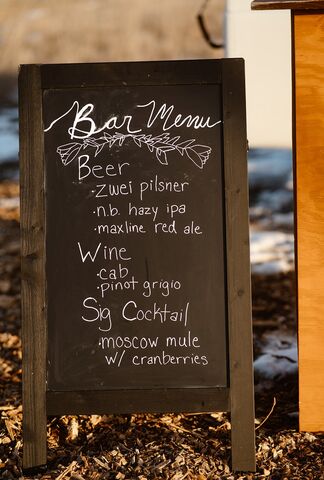 Bar Menu
Beer
·zwei pilsner
·n.b. hazy ipa
·maxline red ale
Wine
·cab
·pinot grigio
Sig Cocktail
·moscow mule
w/ cranberries